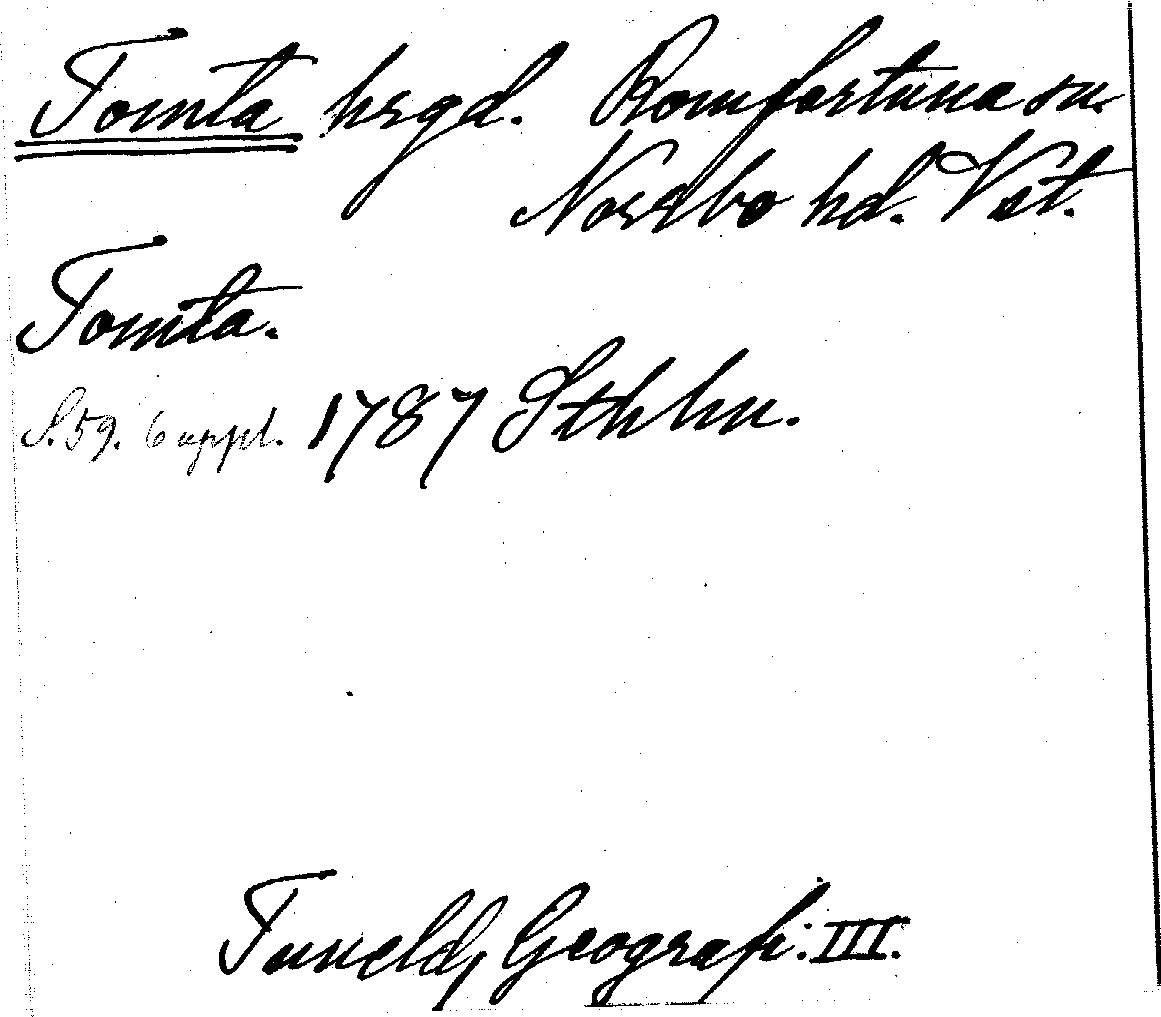 Tomta hrgd. Romfartuna sn.
Norrbo hd. Vst.
Tomta.
S. 59. 6 uppl. 1787 Sthlm.
Tuneld, Geografi: III.